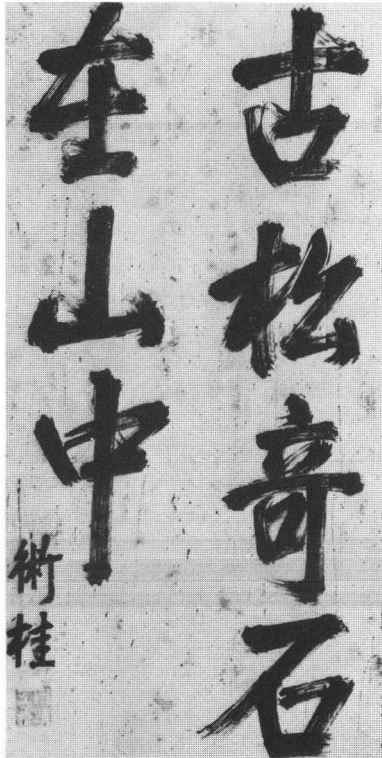 古松奇石
在山中
術桂